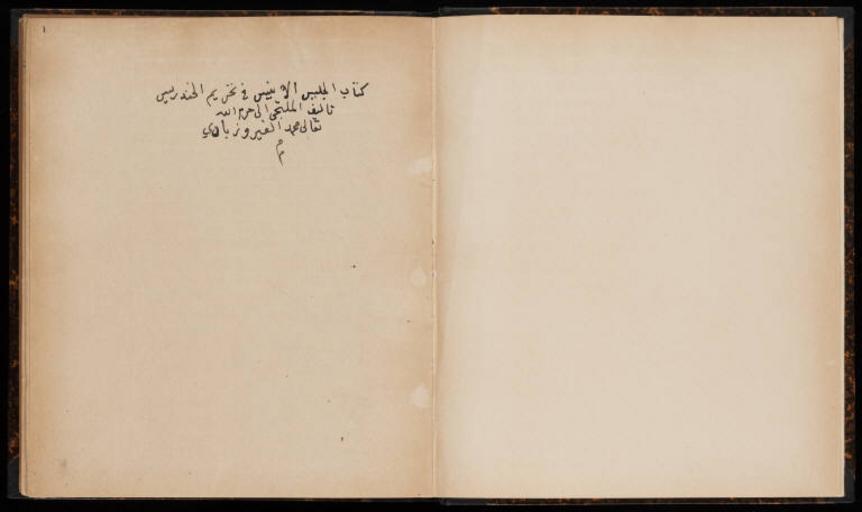 1
كتاب الجليس الانيس في تحريم الخندريس
تاليف الملتجي الى حرم الله
تعالى محمد الفيروزبادي
م